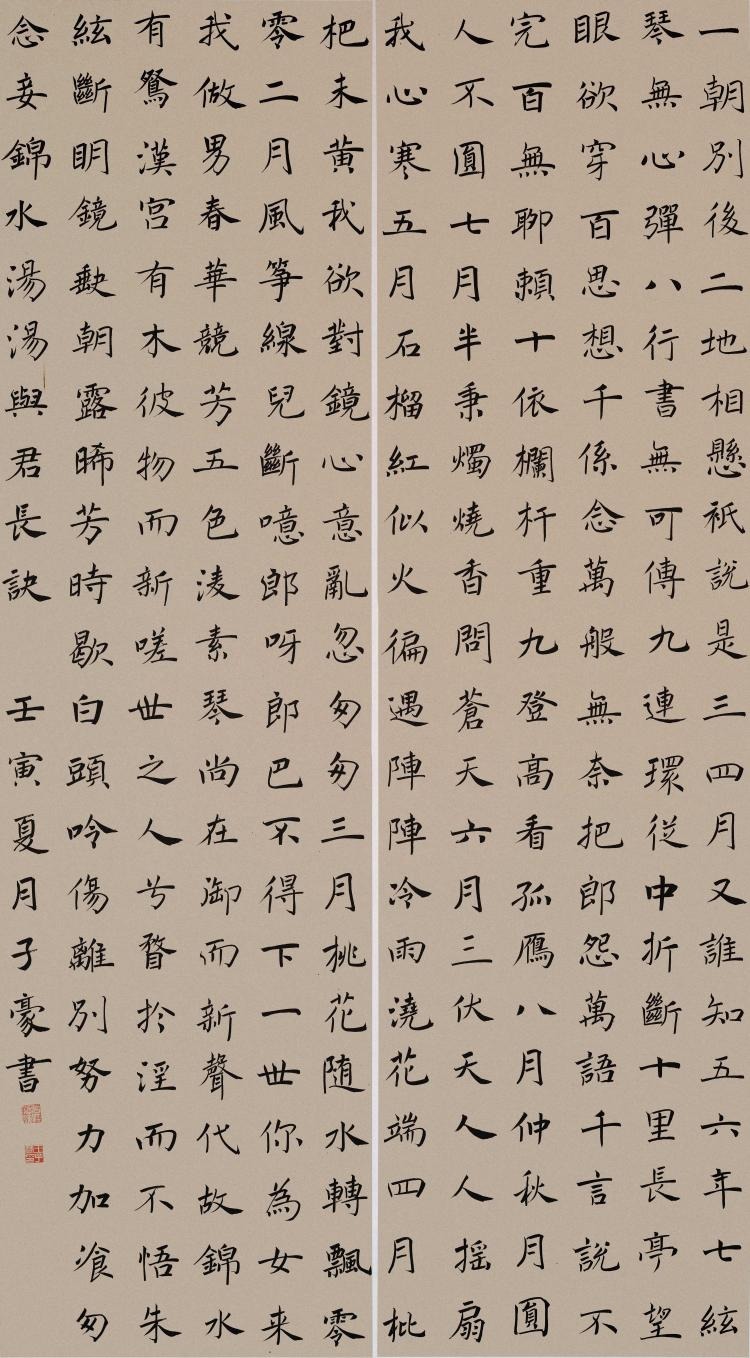 一朝別後二地相懸祇說是三四月又誰知五六年七絃
琴無心彈八行書無可傳九連環從中折斷十里長亭望
眼欲穿百思想千係念萬般無奈把郎怨萬語千言說不
完百無聊賴十依欄杆重九登高看孤鴈八月仲秋月圓
人不圓七月半秉燭燒香問蒼天六月三伏天人人搖扇
我心寒五月石榴紅似火徧遇陣陣冷雨澆花端四月枇
杷未黃我欲對鏡心意亂忽匆匆三月桃花随水轉飄零
零二月風箏線兒斷噫郎呀郎巴不得下一世你為女来
我做男春華競芳五色淩素琴尚在御而新聲代故錦水
有鴛漢宮有木彼物而新嗟世之人兮瞀扵淫而不悟朱
絃斷明鏡缺朝露晞芳時歇白頭吟傷離別努力加飡匆
念妾錦水湯湯與君長訣 壬寅夏月子豪書